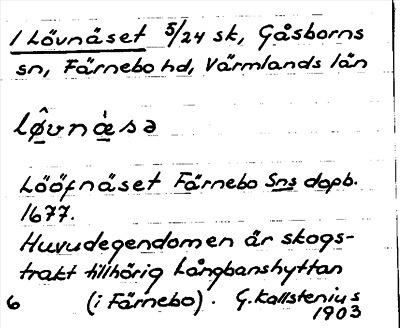 1 Lövnäset 5/24 sk, Gåsborns
sn, Färnebo hd, Värmlands län
lø̂vnàsə
Lööfnäset Färnebo Sns dopb.
1677.
Huvudegendomen är skogs-
trakt tillhörig Långbanshyttan
6 (i Färnebo). G. Kallstenius
1903